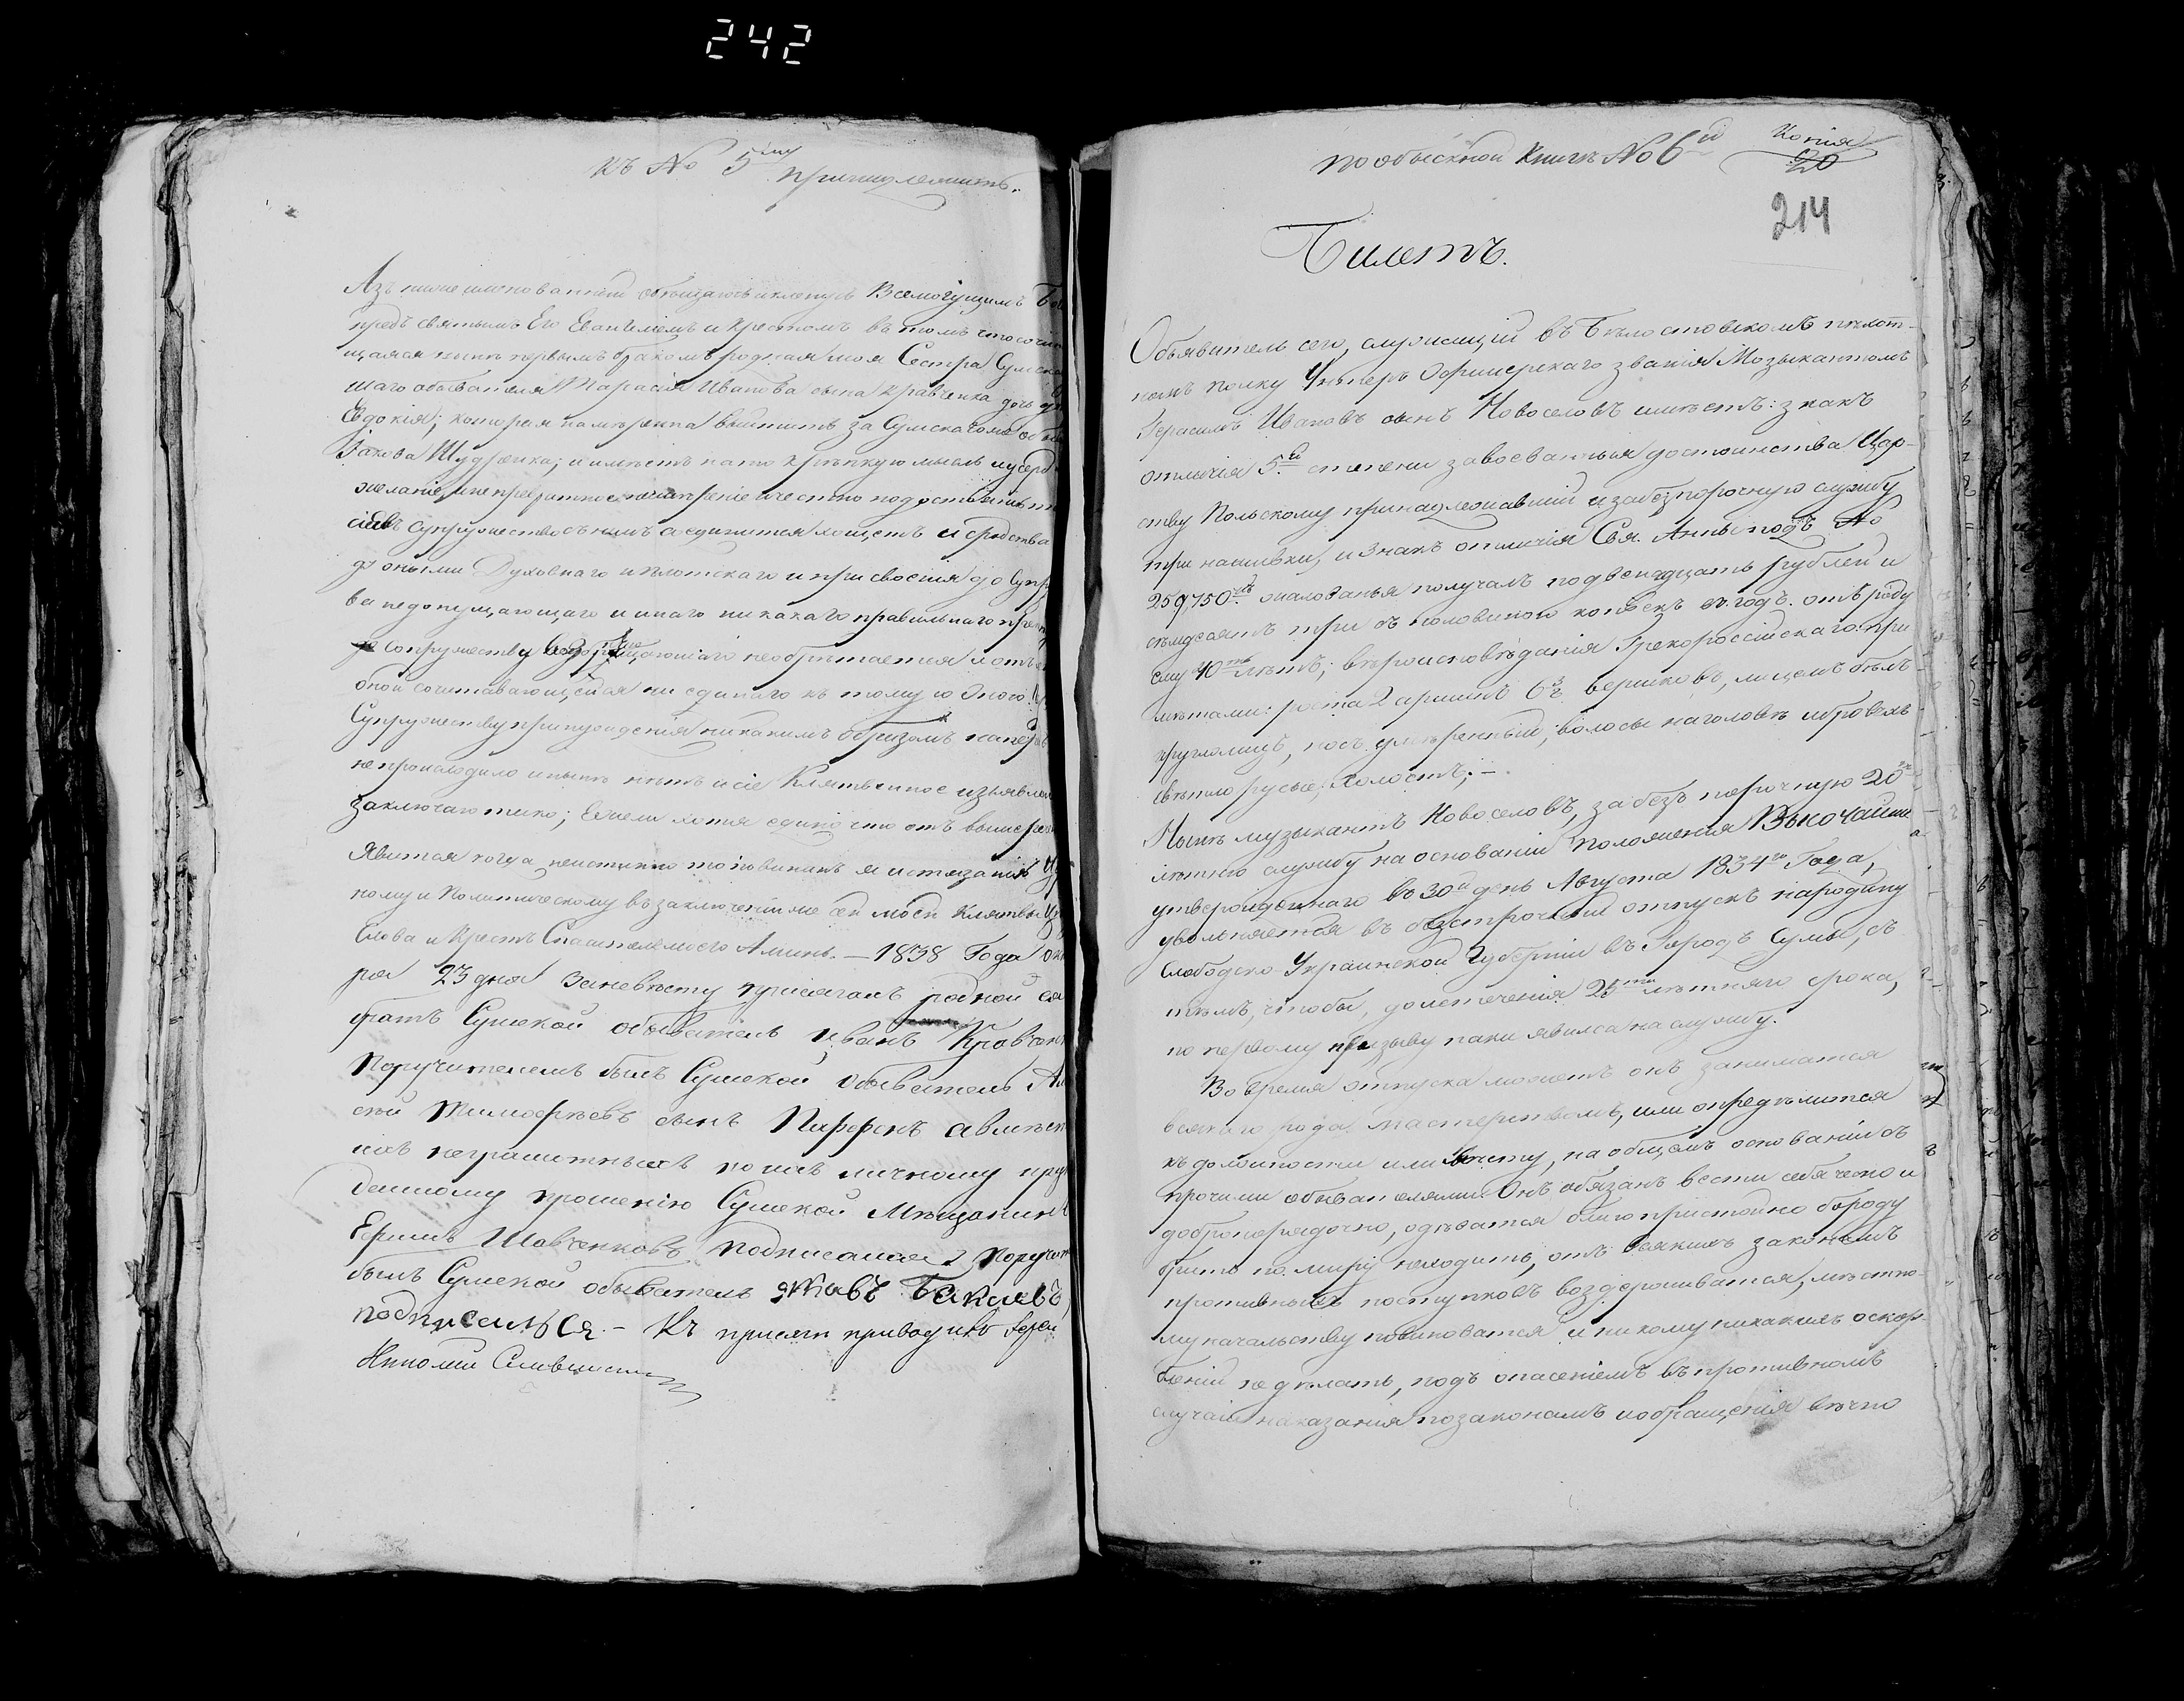 242
къ № 5му принадлежитъ.
Азъ нижеименованный обѣщаюсь и кленусь Всемогущимъ
предъ святымъ Его Евангелiемъ и Крестомъ въ томъ что сочи
щаяся нынѣ первымъ бракомъ родная моя Сестра Сумска
шаго обывателя Тарасiя Иванова сына Кравченка дочь
Евдокiя; которая намѣренна вытить за Сумскагоже
Якова Щудренка; и имѣетъ на то крѣпкую мысль и усерд
желанiе, и непревратное намѣренiе и честно по достоинст
сiевъ супружество съ нимъ соединится хощетъ и сродства
Духовнаго и плотскаго и присвоенiя до Супр
ва недопущающаго и инаго никакаго правильнаго преп
сопружеству необрѣтается
обои сочитавающiйся ни единаго къ тому
Супружеству принужденiя никакимъ образомъ
непроисходило и нынѣ нѣтъ и сiе Клятвенное изъявле
заключаю тако; Ежели хотя едино что отъ вышере
Явится когда неистинно то повиненъ я истязанiю
ному и Политическому въ заключенiи же сей моей клятвы Цѣ
Слова и Крестъ Спасителя моего Аминь. — 1838 Года
ря 23 дня За невѣсту присягалъ родной ея
братъ Сумской обыватель Иванъ Кравчен
Поручителемъ былъ Сумской Обыватель
сѣй Тимофѣевъ сынъ Парфенъ а вмѣст
ихъ неграмотныхъ по ихъ личному
денному прошенiю Сумской Мѣщанинъ
Ефимъ Шевченковъ подписался 2 Поручит
былъ Сумской обыватель
подписалься. — Къ присягѣ приводилъ Iерей
по обыскной книгѣ № 6й
Копiя
20
214
Билетъ.
Объявитель сего, служащiй въ Бѣлостокскомъ пѣхот-
номъ полку Унтеръ Офицерскаго званiя Музыкантомъ
Герасимъ Ивановъ сынъ Новоселовъ имѣетъ: знакъ
отличiя 5й степени за военныя достоинства Цар-
ству Польскому принадлежавшiй и за безпорочную службу
три нашивки, и знакъ отличiя Свя. Анны подъ №
259,750мъ жалованья получалъ по двенадцать рублей и
семдесятъ три съ половиной копѣекъ въ годъ. отъ роду
ему 40ть лѣтъ; вѣроисповѣданiя Грекороссiйскаго: при
мѣтами: роста 2 аршинъ 6 3/8 вершковъ, лицемъ бѣлъ
круглолицъ, носъ умѣренный, волосы на головѣ и бровехъ
свѣтло русые, холостъ; —.
Нынѣ музыкантъ Новоселовъ, за безъ порочную 20ти
лѣтнюю службу на основанiи положенiя Высочайше
утвержденнаго въ 30й день Августа 1834го Года,
увольняется въ безсрочный отпускъ на родину
Слободско-Украинской Губернiи въ Городъ Сумы, съ
тѣмъ, чтобы, до истеченiя 25ти лѣтняго срока,
по первому призыву паки явился на службу.
Во время отпуска можетъ онъ заниматся
всякаго рода мастерствомъ, или опредѣлится
къ должности или найму, на общемъ основанiи съ
прочими обывателями. Онъ обязанъ вести себя честно и
добропорядочно, одѣватся благопристойно бороду
брить по миру неходить, отъ всякихъ законамъ
противныхъ поступковъ воздерживатся, мѣстно-
му начальству повиноватся и никому никакихъ оскор-
бленiй не дѣлать, подъ опасенiемъ въ противномъ
случаи наказанiя по законамъ и обращенiя вѣчно